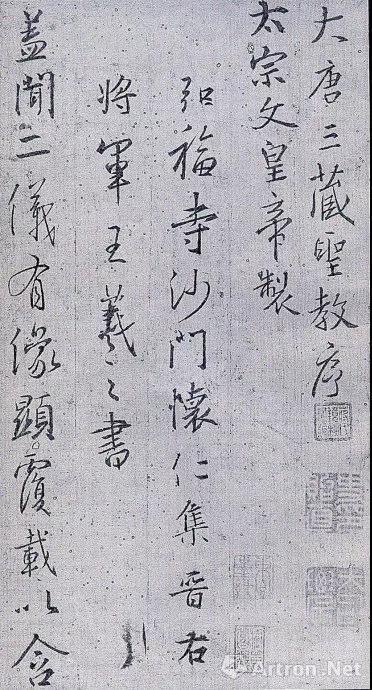 大唐三藏聖教序
太宗文皇帝製
弘福寺沙門懷仁集晉右
將軍王羲之書
蓋聞二儀有像顯覆載以含
Artron.Net